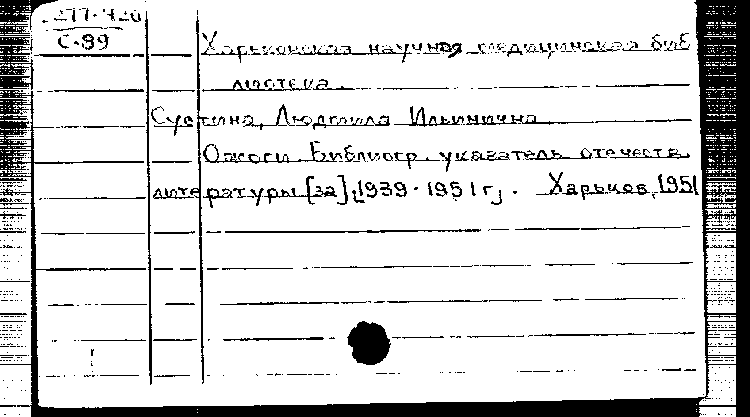 277.420
С-89
Харьковская научная медицинская биб
лиотека.
Сустина, Людмила Ильинична
Ожоги. Библиогр. указатель отечеств.
литературы [за] 1939-1951 г. Харьков, 1951